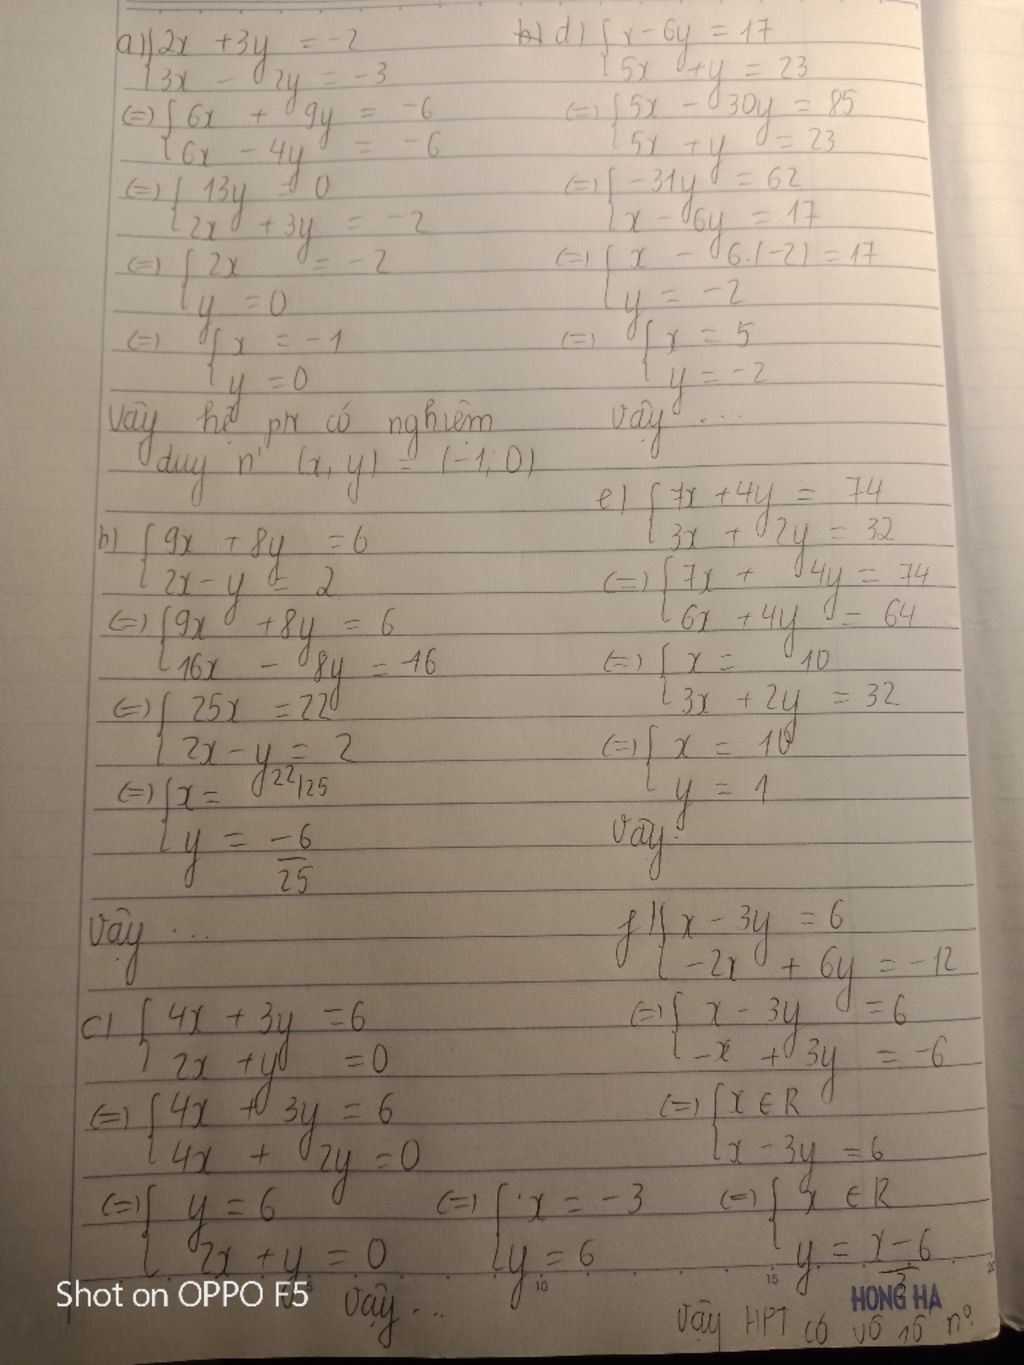 a) { 2x + 3y = -2
3x - 2y = -3
(=) { 6x + 9y = -6
6x - 4y = -6
(=) { 13y = 0
2x + 3y = -2
(=) { 2x = -2
y = 0
(=) { x = -1
y = 0
Vậy hệ pt có nghiệm
duy n' (x, y) = (-1; 0)
b) { 9x + 8y = 6
2x - y = 2
(=) { 9x + 8y = 6
16x - 8y = 16
(=) { 25x = 22
2x - y = 2
(=) { x = 22/25
y = -6/25
Vậy ...
c) { 4x + 3y = 6
2x + y = 0
(=) { 4x + 3y = 6
4x + 2y = 0
(=) { y = 6
2x + y = 0
(=) { x = -3
y = 6
Vậy ...
d) { x - 6y = 17
5x + y = 23
(=) { 5x - 30y = 85
5x + y = 23
(=) { -31y = 62
x - 6y = 17
(=) { x - 6.(-2) = 17
y = -2
(=) { x = 5
y = -2
Vậy ...
e) { 7x + 4y = 74
3x + 2y = 32
(=) { 7x + 4y = 74
6x + 4y = 64
(=) { x = 10
3x + 2y = 32
(=) { x = 10
y = 1
Vậy.
f) { x - 3y = 6
-2x + 6y = -12
(=) { x - 3y = 6
-x + 3y = -6
(=) { x ∈ R
x - 3y = 6
(=) { x ∈ R
y = x-6/3
Vậy HPT có vô số nº
10
15
20
HONG HA
Shot on OPPO F5